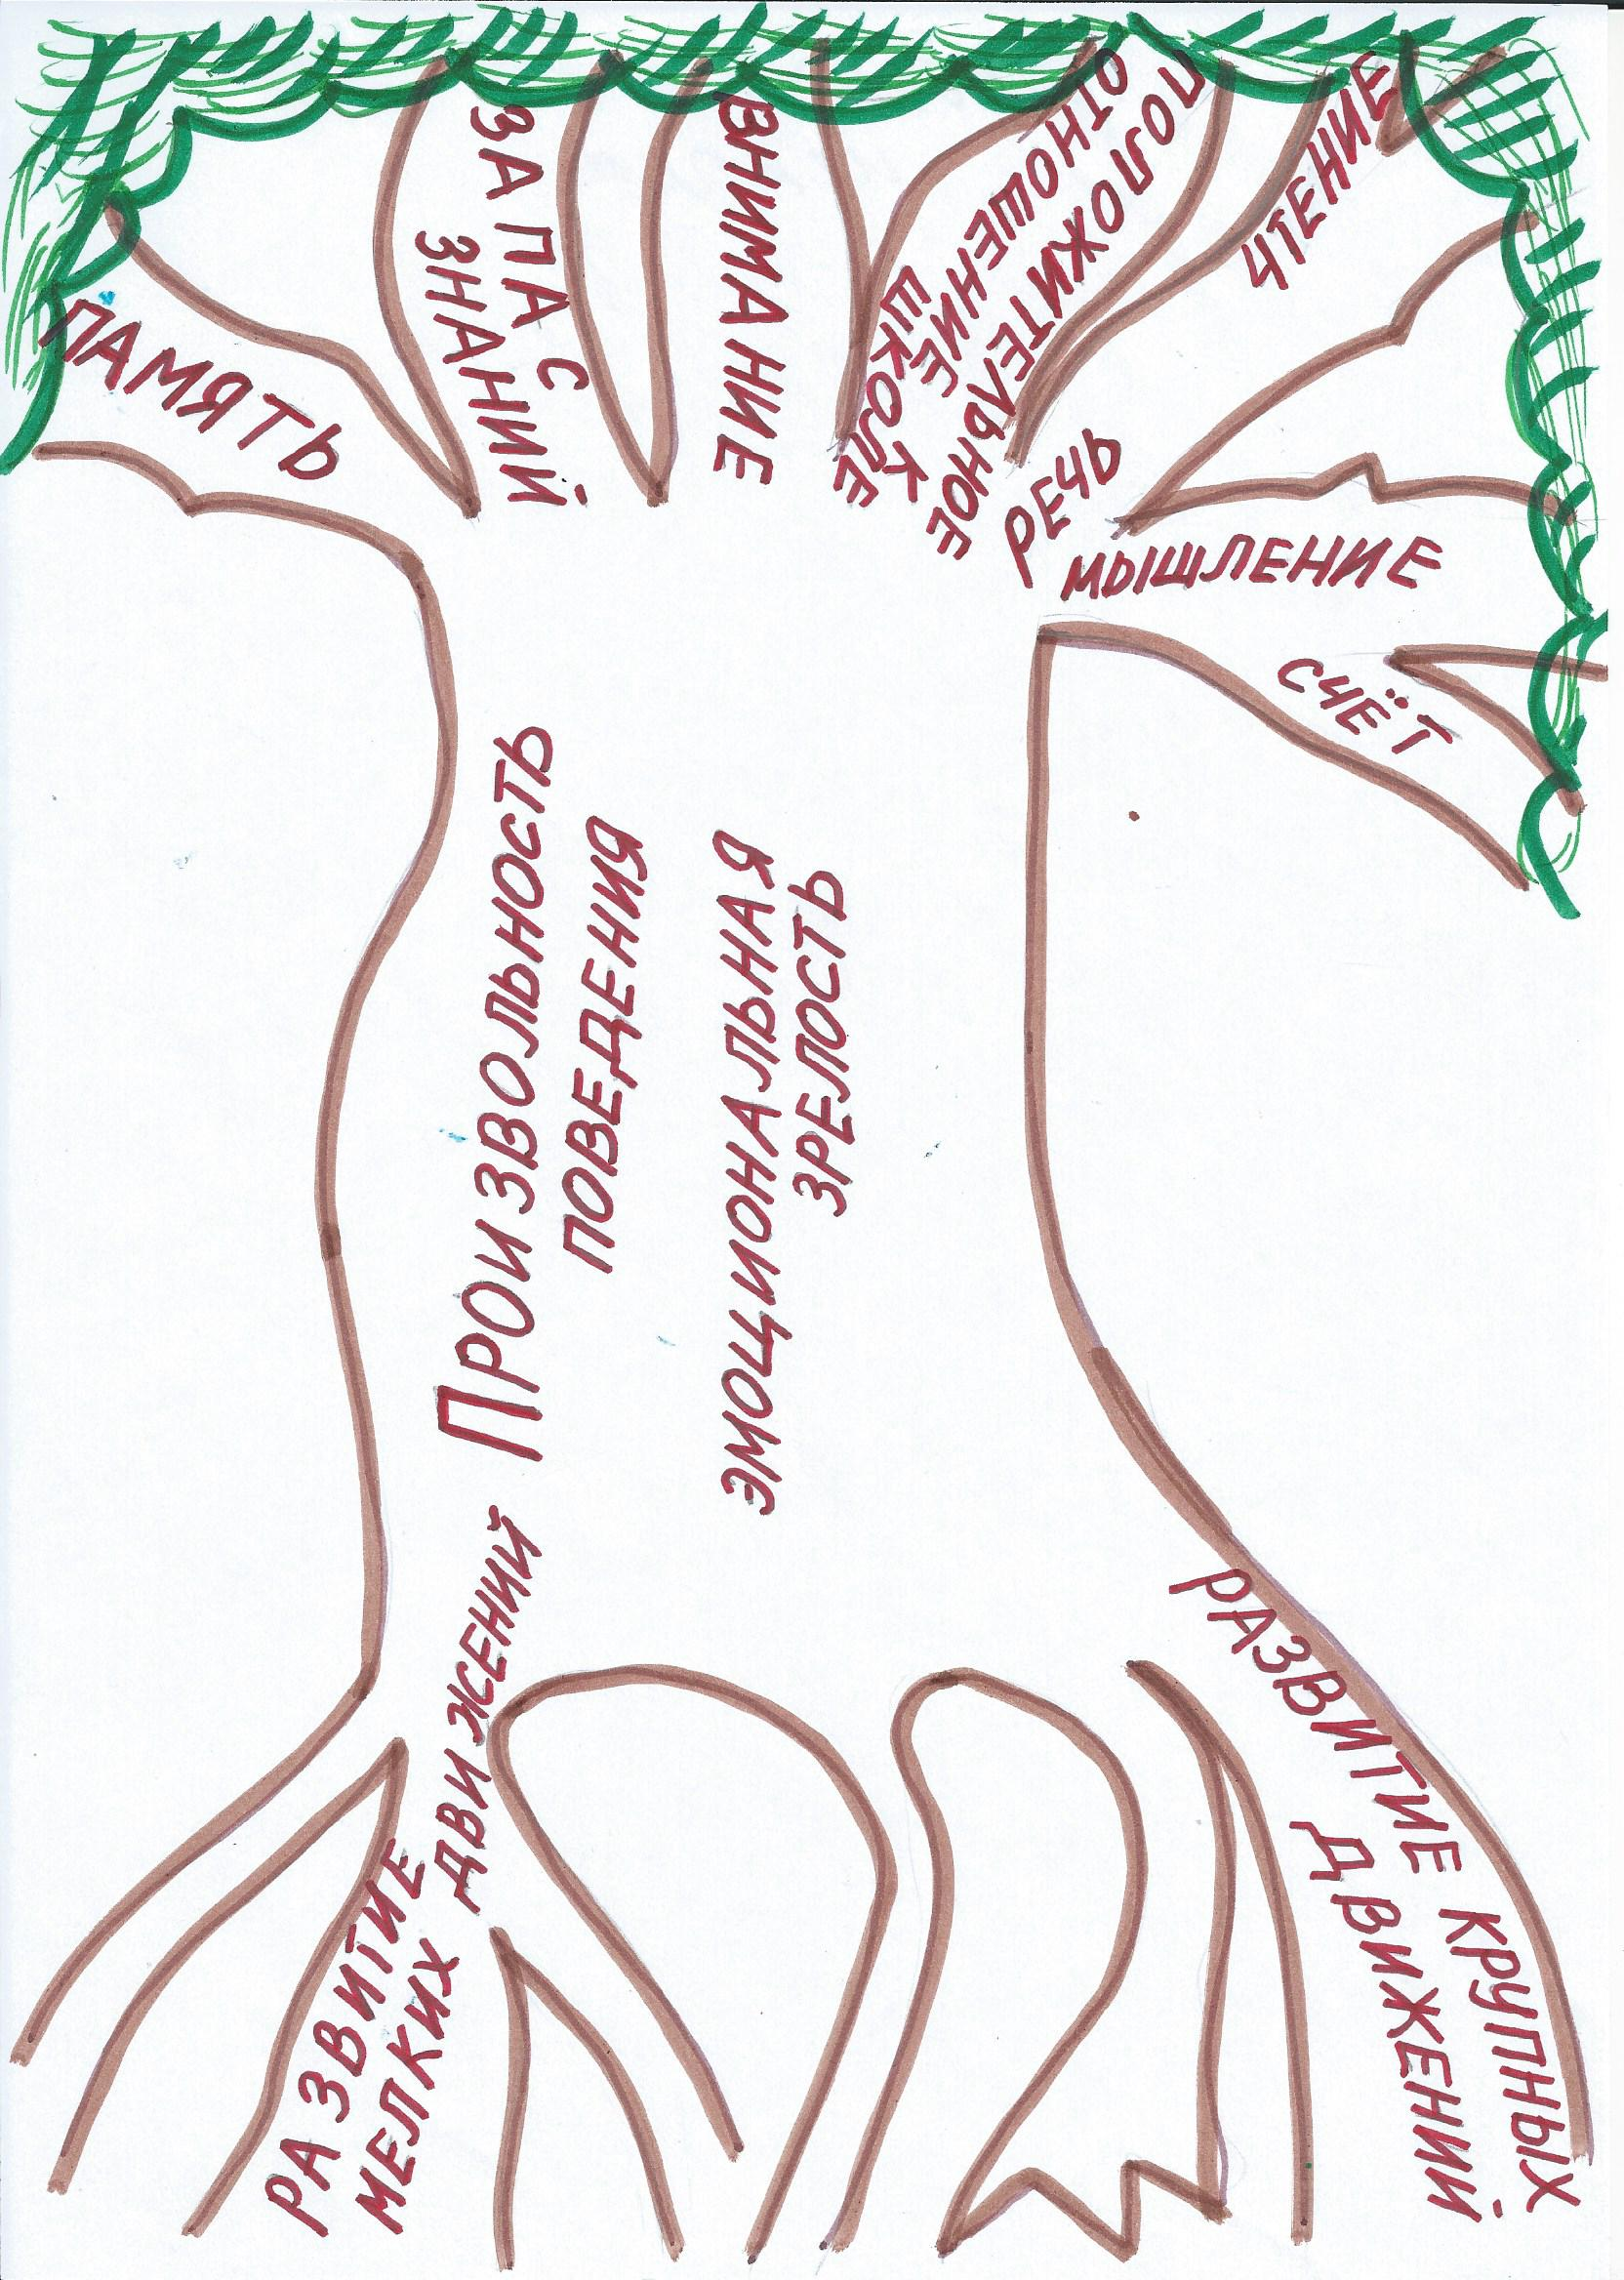 ПАМЯТЬ
ЗАПАС
ЗНАНИЙ
ВНИМАНИЕ
ПОЛОЖИТЕЛЬНОЕ
ОТНОШЕНИЕ К
ШКОЛЕ
РЕЧЬ
ЧТЕНИЕ
МЫШЛЕНИЕ
СЧЁТ
ПРОИЗВОЛЬНОСТЬ
ПОВЕДЕНИЯ
ЭМОЦИОНАЛЬНАЯ
ЗРЕЛОСТЬ
РАЗВИТИЕ
МЕЛКИХ ДВИЖЕНИЙ
РАЗВИТИЕ КРУПНЫХ
ДВИЖЕНИЙ